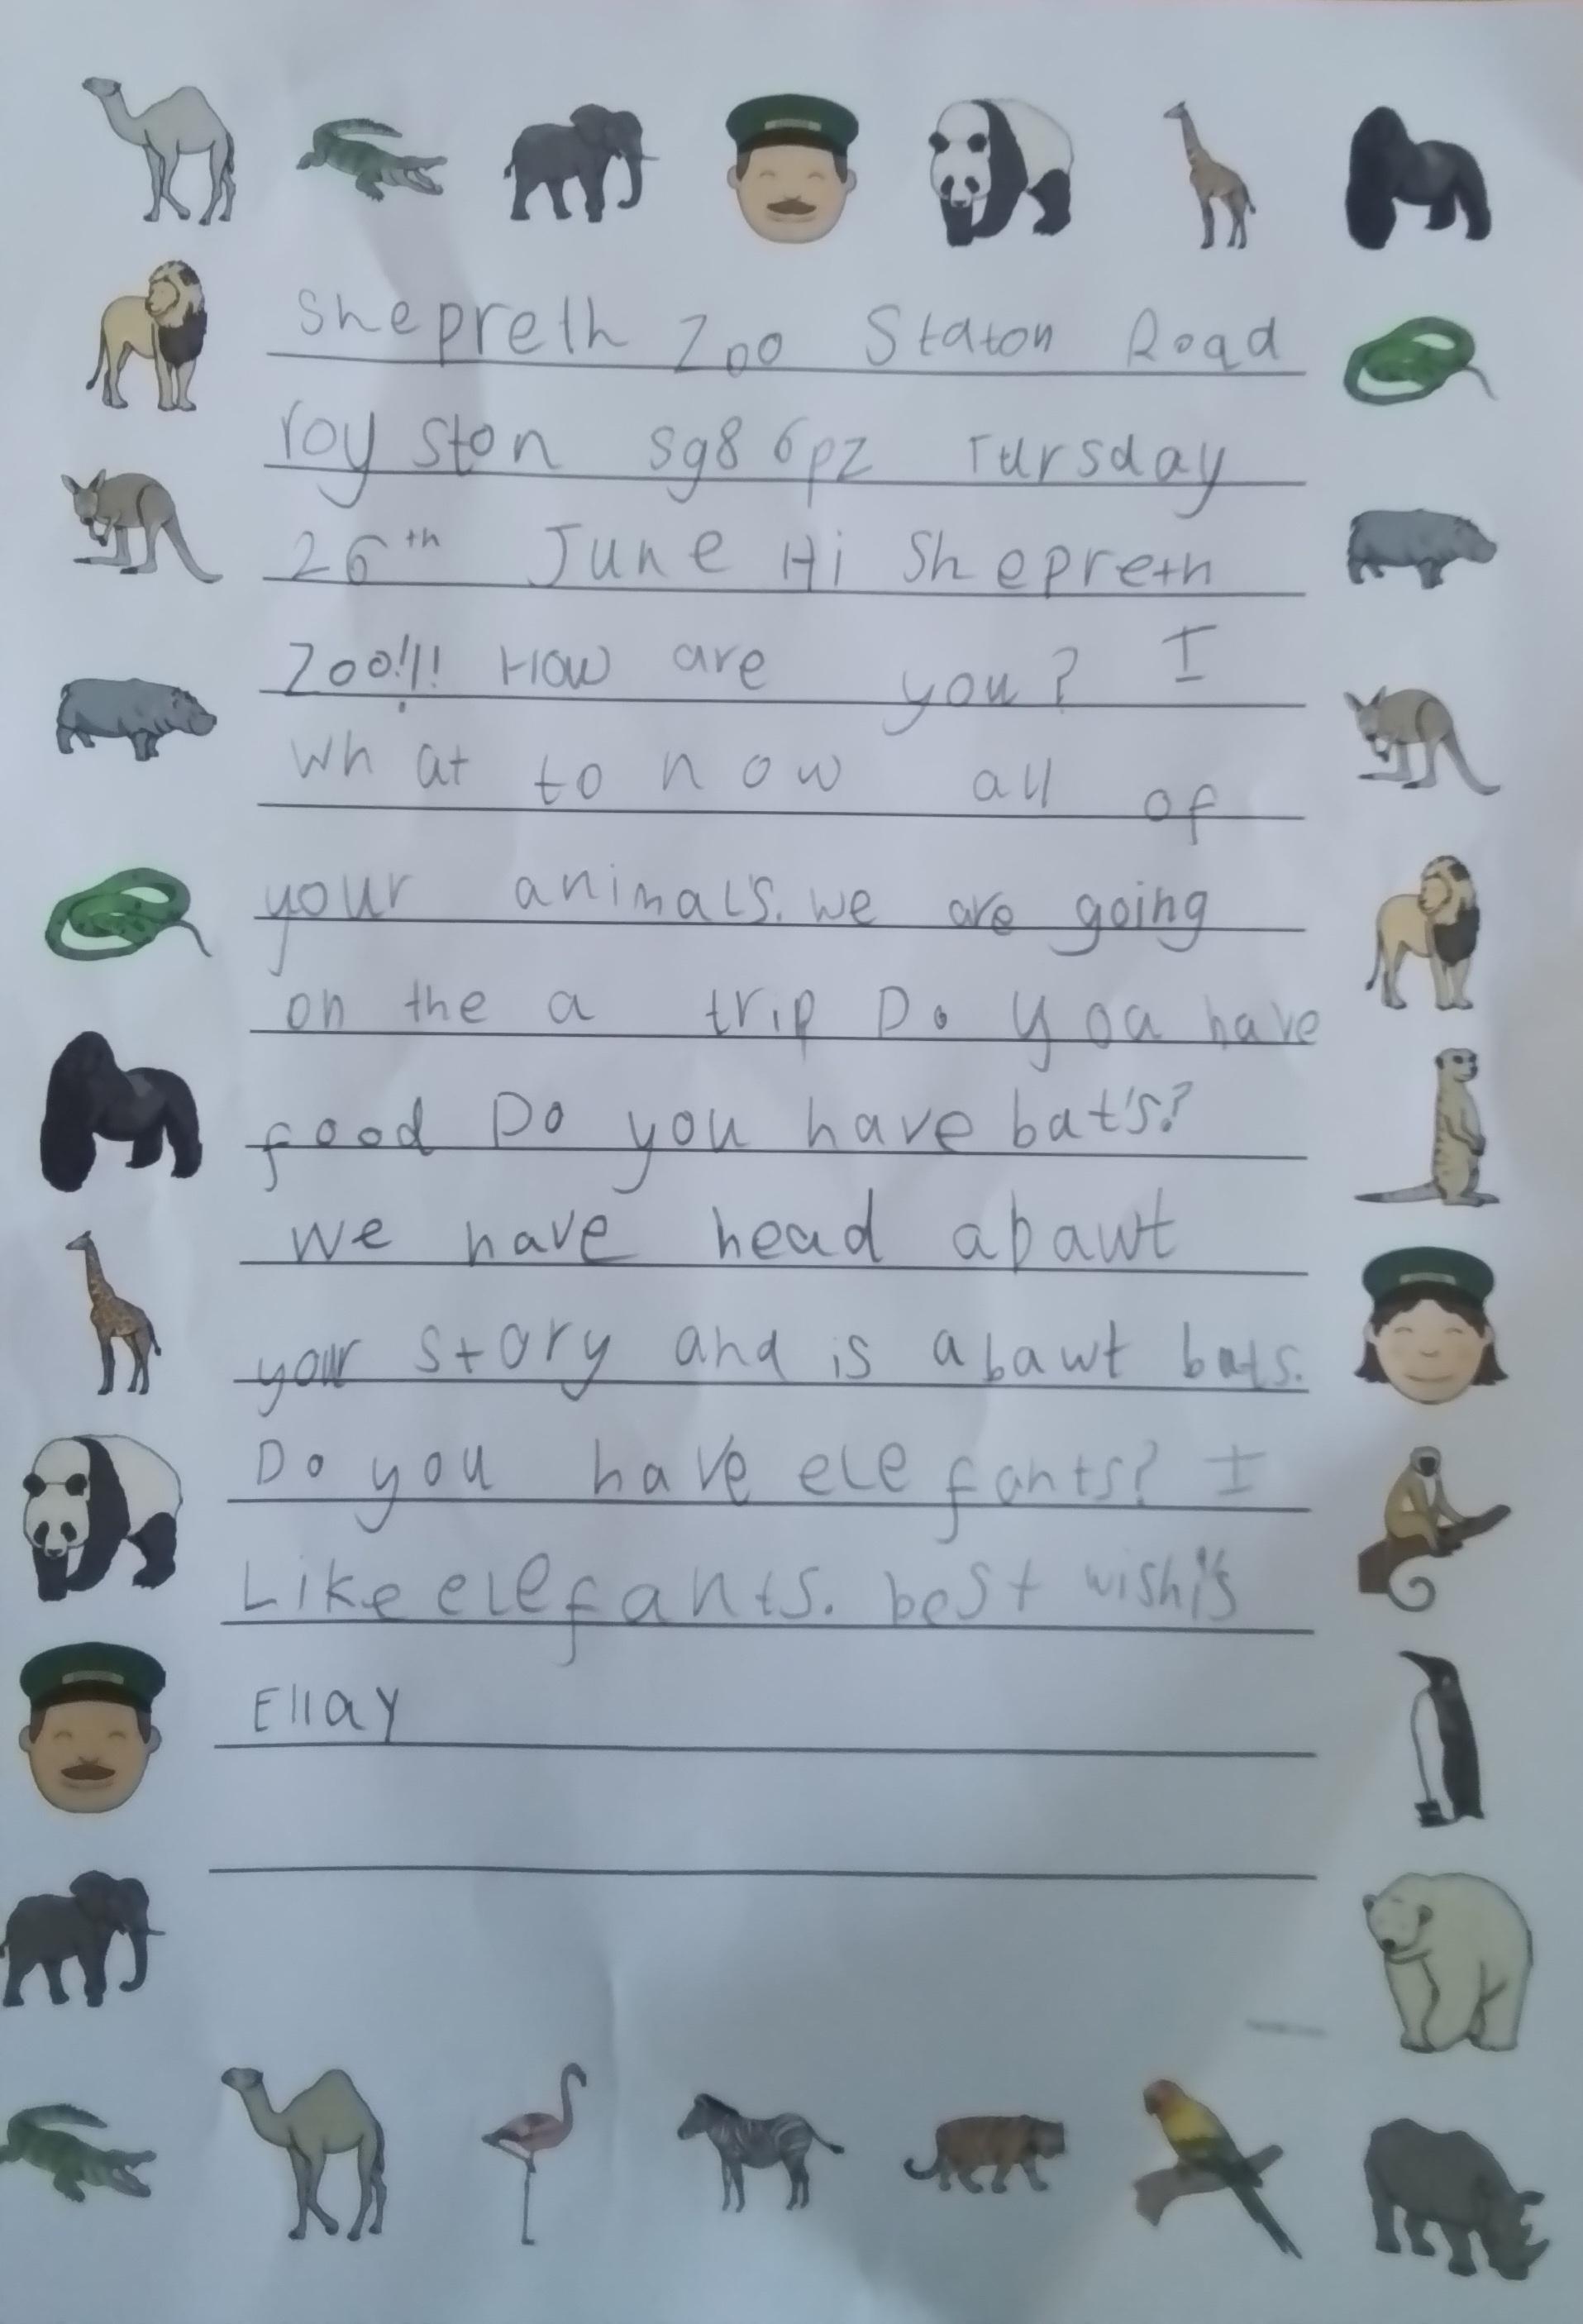 Shepreth Zoo Staton Road
roy ston sg8 6pz Tursday
26th June Hi Shepreth
Zoo!!! How are you? I
wh at to now all of
your animal's. we are going
on the a trip Do yoa have
food Do you have bat's?
we have head abawt
your story and is abawt bats.
Do you have elefants? I
Like elefants. best wishi's
Ellay